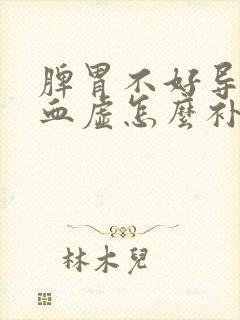 脾胃不好导
血虚怎麼补
林木兒